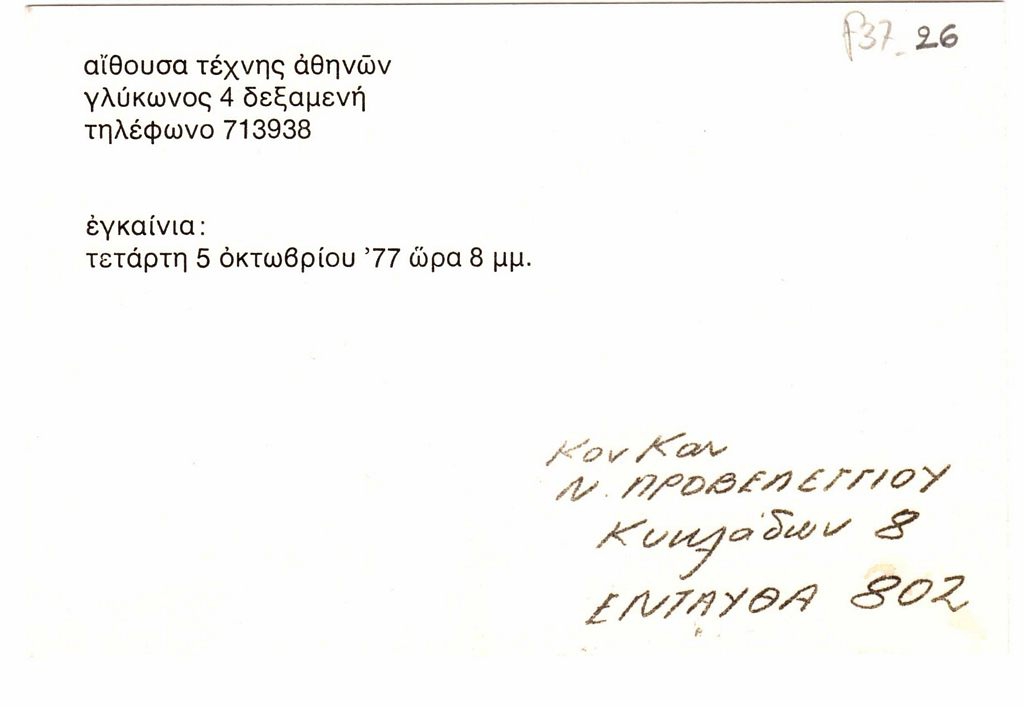 f37_26
αἴθουσα τέχνης ἀθηνῶν
γλύκωνος 4 δεξαμενή
τηλέφωνο 713938
ἐγκαίνια:
τετάρτη 5 ὀκτωβρίου ’77 ὥρα 8 μμ.
Κον Καν
Ν. ΠΡΟΒΕΛΕΓΓΙΟΥ
Κυκλάδων 8
ΕΝΤΑΥΘΑ 802